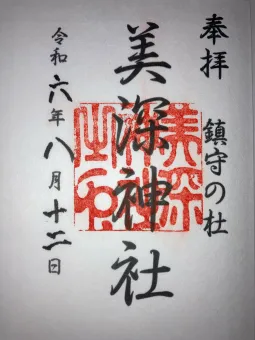 奉拝 鎮守の杜
美深神社
美深神社之印
令和六年八月十二日